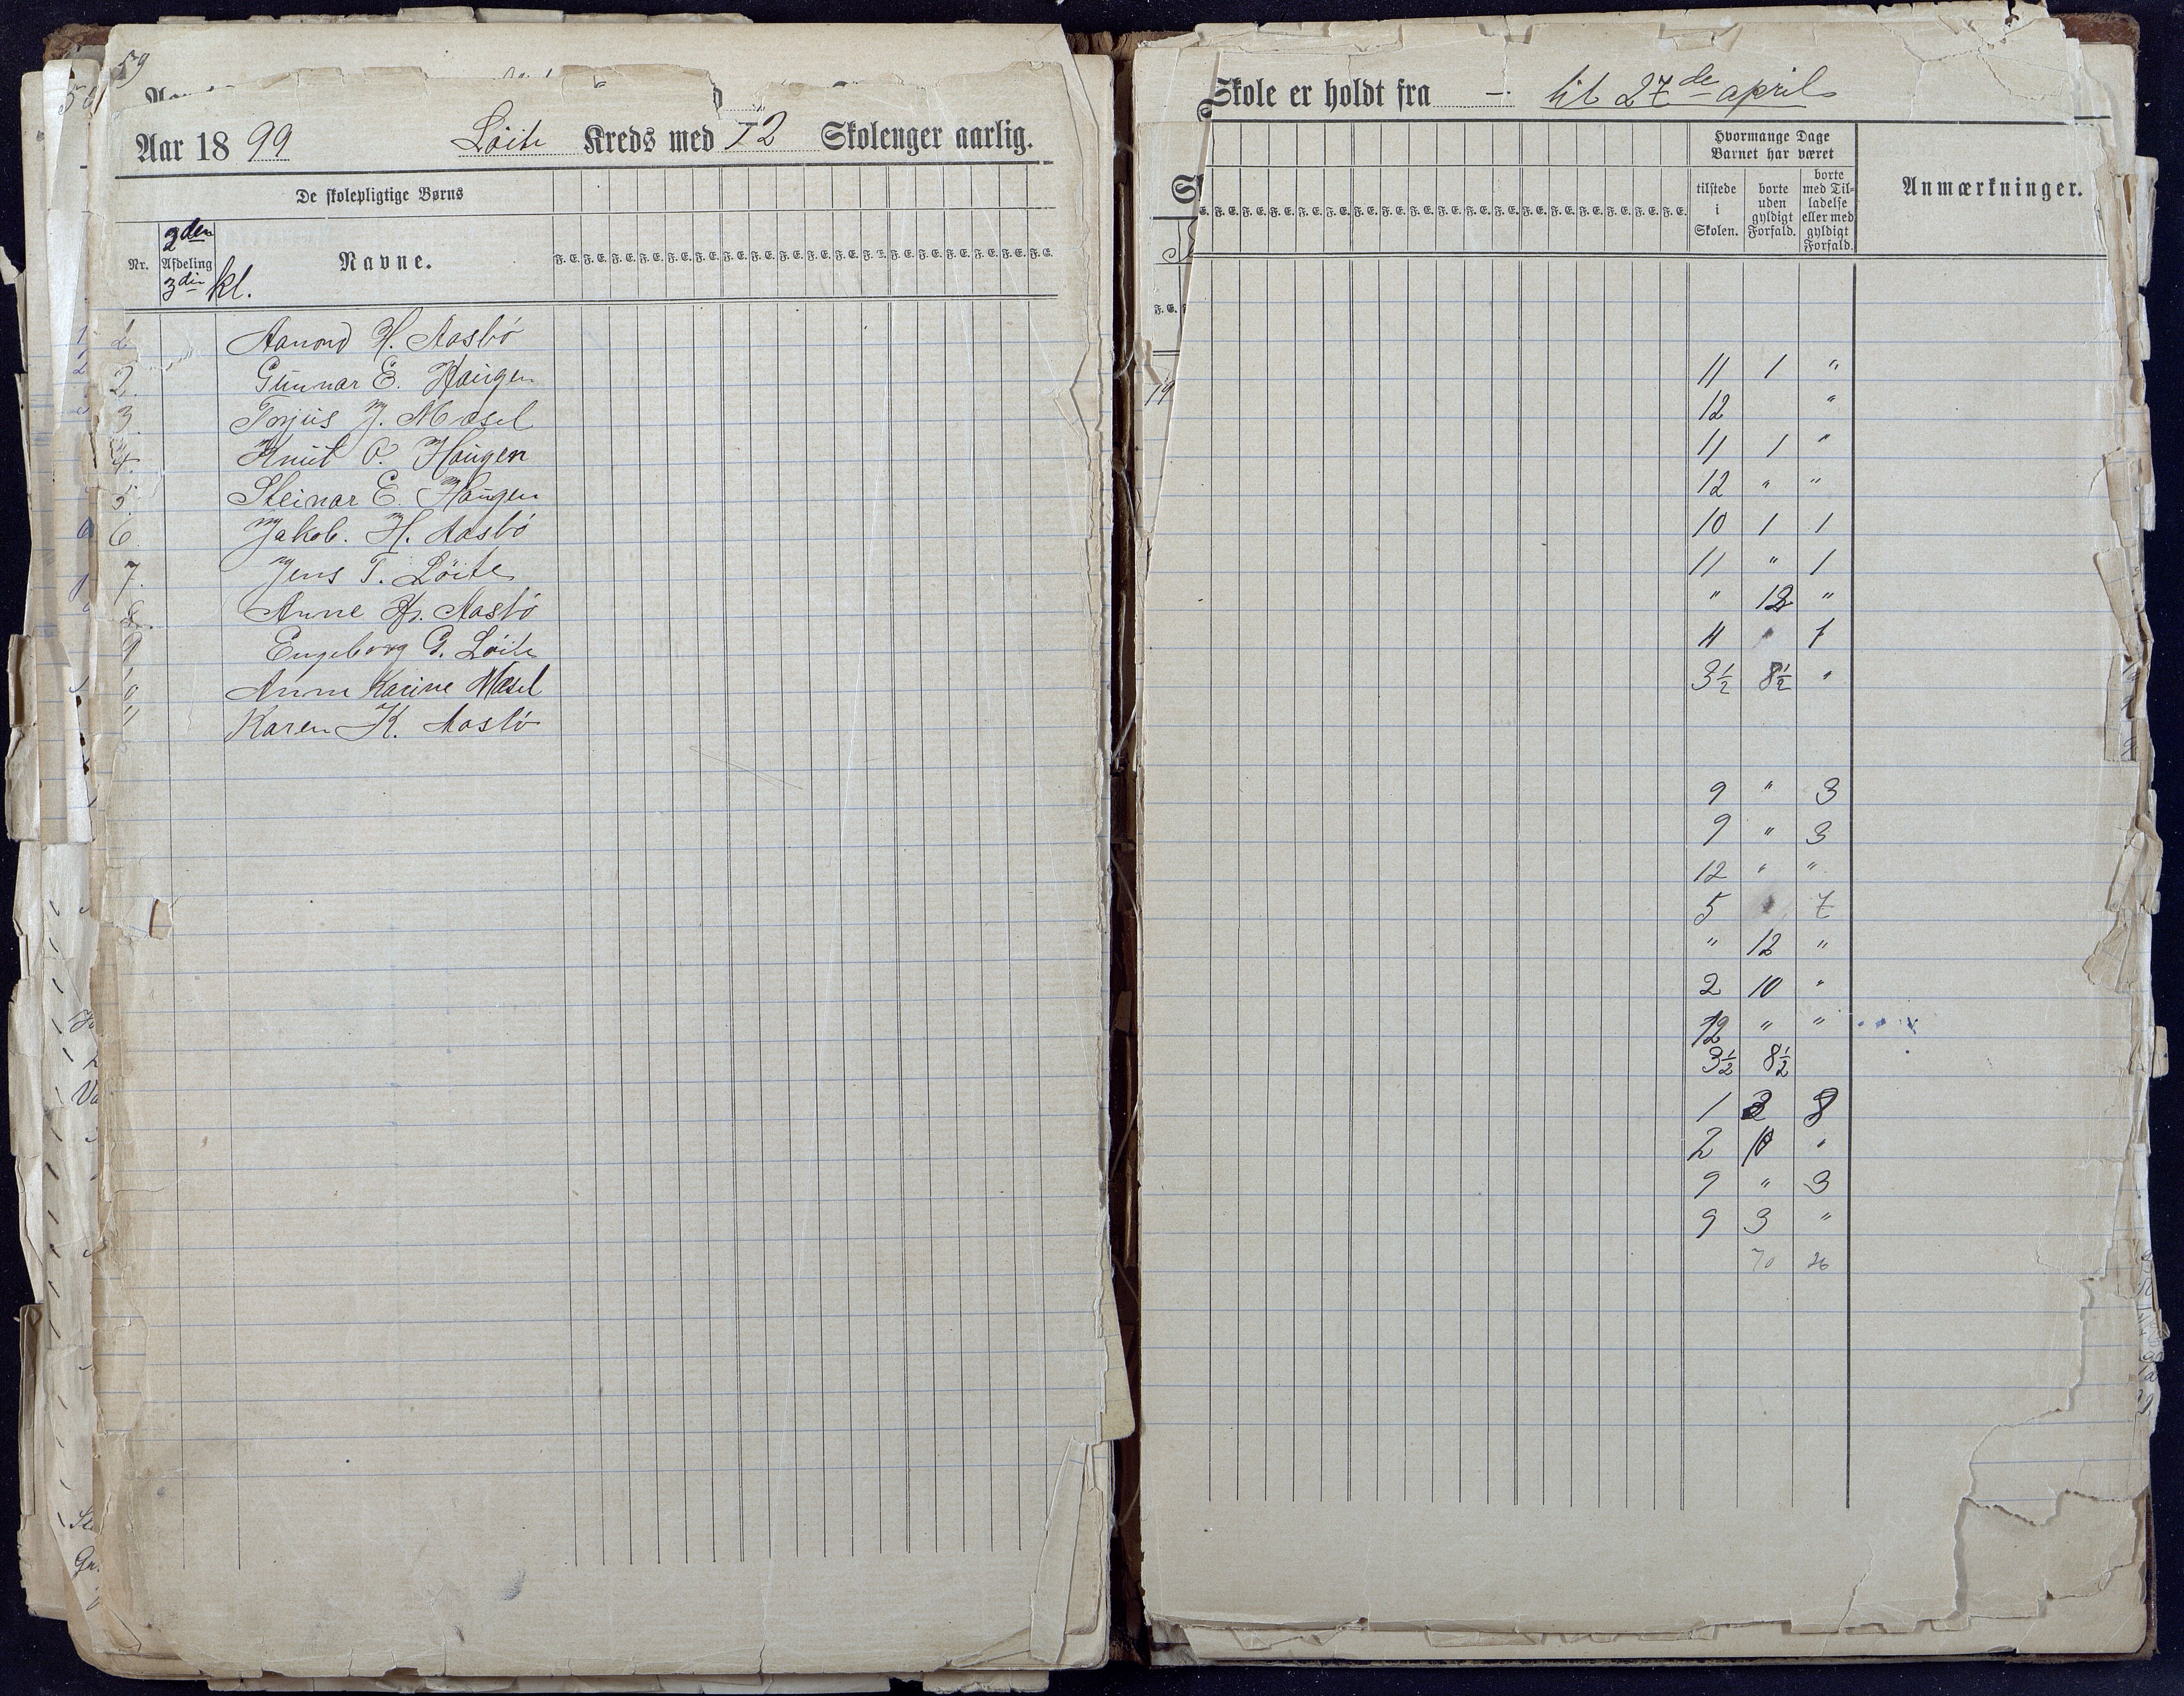 59
Aar 18 99 Löite Kreds med 12 Skolenger aarlig.
De skolepligtige Børns
2den
Nr. Afdeling Navne. F. E. F. E. F. E. F. E. F. E. F. E. F. E. F. E. F. E. F. E. F. E. F. E. F. E. F. E. F. E. F. E. F. E. F. E.
3die kl.
1 Aanond H. Aasbö
2. Gunnar E. Haugen
3. Torjus J. Mæsel
4. Knut O. Haugen
5. Steinar E. Haugen
6. Jakob. H. Aasbö
7. Jens T. Löite
8. Anne H. Aasbö
9 Engeborg G. Löite
10 Anne Karine Mæsel
11 Karen K. Aasbö
Skole er holdt fra - til 27de april
Hvormange Dage
Barnet har været
tilstede i Skolen.
borte uden gyldigt Forfald.
borte med Tilladelse eller med gyldigt Forfald.
Anmærkninger.
F. E. F. E. F. E. F. E. F. E. F. E. F. E. F. E. F. E. F. E. F. E. F. E. F. E. F. E. F. E. F. E. F. E.
11 1 "
12 "
11 1 "
12 " "
10 1 1
11 " 1
" 12 "
11 1
3½ 8½ "
9 " 3
9 " 3
12 " "
5 7
" 12 "
2 10 "
12 " "
3½ 8½
1 3 8
2 10 "
9 " 3
9 3 "
70 26